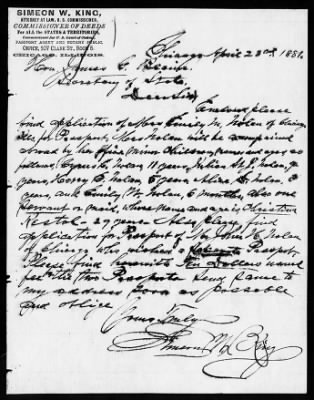 SIMEON W. KING,
ATTORNEY AT LAW, U. S. COMMISSIONER,
COMMISSIONER OF DEEDS
For all the STATES & TERRITORIES,
PASSPORT AGENT AND NOTARY PUBLIC.
CHICAGO, ILL.
Chicago April 23rd, 1881.
Hon. James G. Blaine
Secretary of State,
Dear Sir,
Enclosed please
find application of Mrs Emily M. Nolan of Chicago
Ills, for Passport, Mrs Nolan will be accompanied
abroad by her five minor Children, names and ages as
follows, Nolan 11 years, Nolan, 9
years, Harry Nolan 5 years Nolan, 3
years, and Emily M. Nolan, 6 months, also one
servant or maid, whose name and age is Christine
27 years Also please find
application for Passport of Mr John H. Nolan
of Chicago who wishes a separate Passport.
Please find herewith Ten Dollars
for the two Passports Send same to
my address soon as possible
and oblige
Yours Truly
Simeon W. King